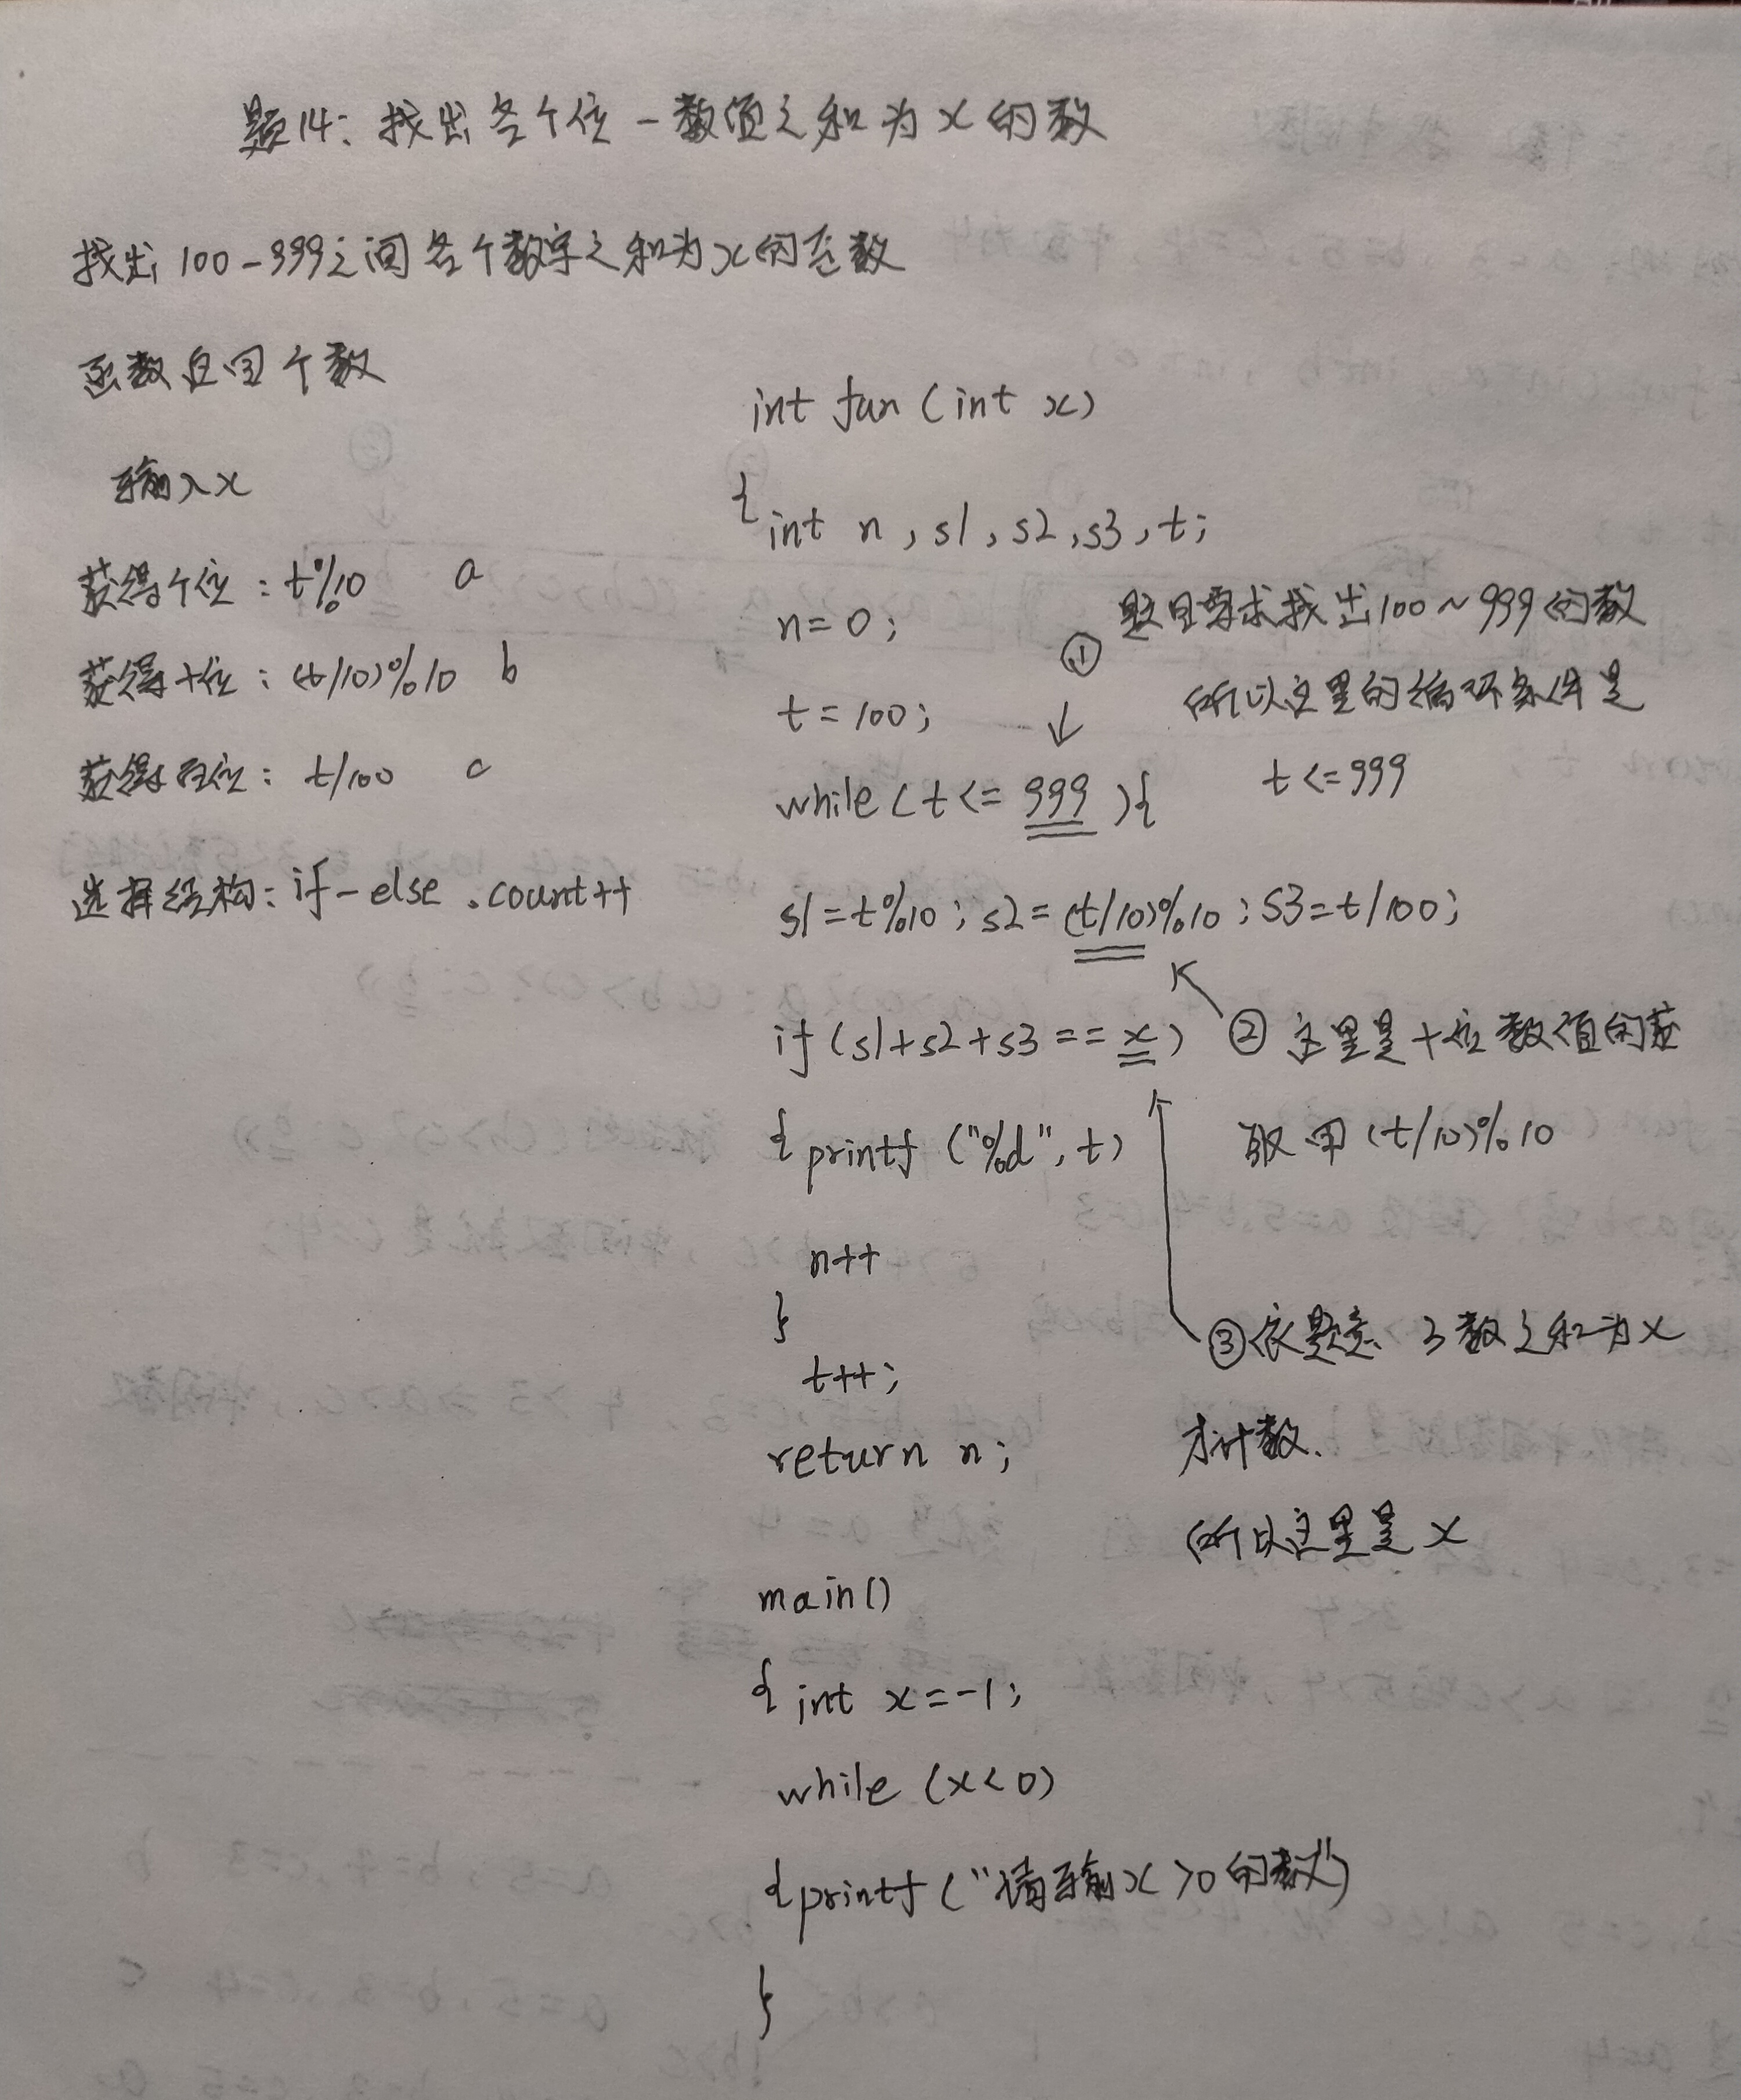 题14: 找出各个位-数值之和为x的数
找出100-999之间各个数字之和为x的函数
函数返回个数
输入x
获得个位: t%10 a
获得十位: (t/10)%10 b
获得百位: t/100 c
选择结构: if-else .count++
int fun (int x)
{int n, s1, s2, s3, t;
n=0;
t=100;
while (t<= 999 ){
s1=t%10; s2=(t/10)%10; s3=t/100;
if (s1+s2+s3 == x)
{printf ("%d", t)
n++
}
t++;
return n;
main()
{int x=-1;
while (x<0)
{printf ("请输x>0的数")
}
① 题目要求找出100~999的数
所以这里的循环条件是
t<=999
② 这里是十位数值的获
取用(t/10)%10
③依题意 3数之和为x
才计数.
所以这里是x